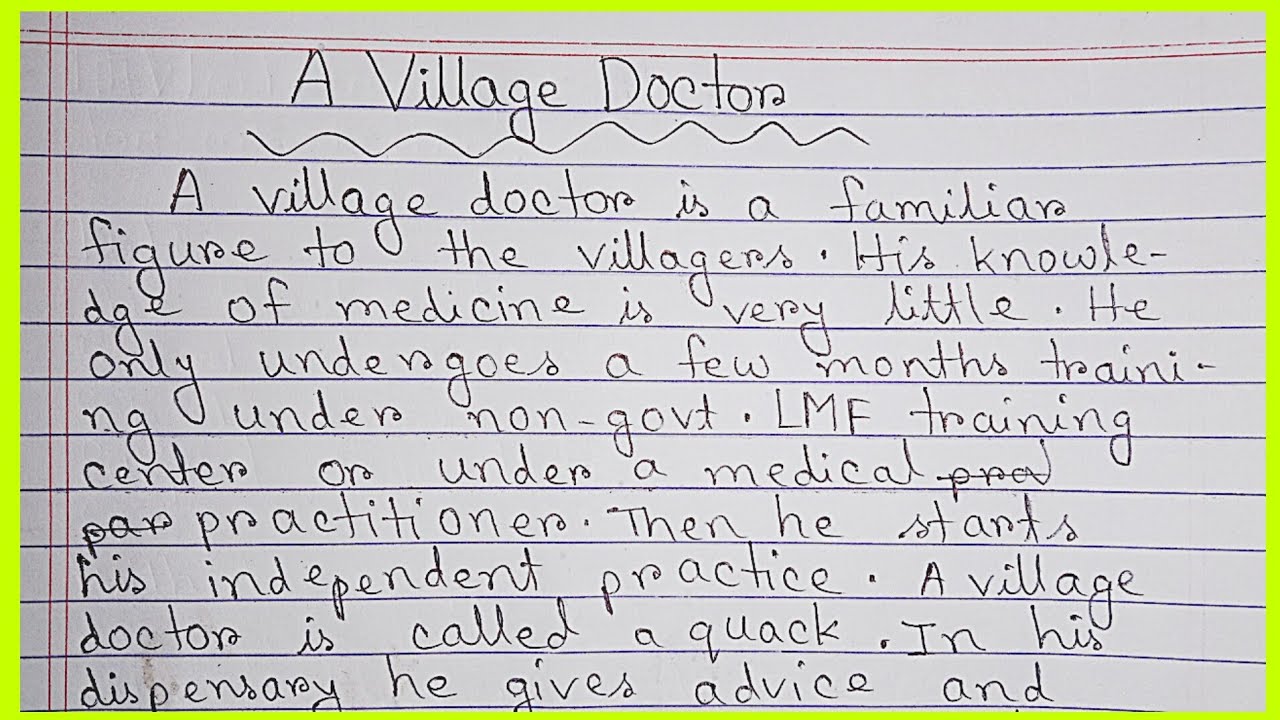 A Village Doctor
A village doctor is a familiar
figure to the villagers. His knowle-
dge of medicine is very little. He
only undergoes a few months traini-
ng under non-govt. LMF training
center or under a medical prad
par practitioner. Then he starts
his independent practice. A village
doctor is called a quack. In his
dispensary he gives advice and